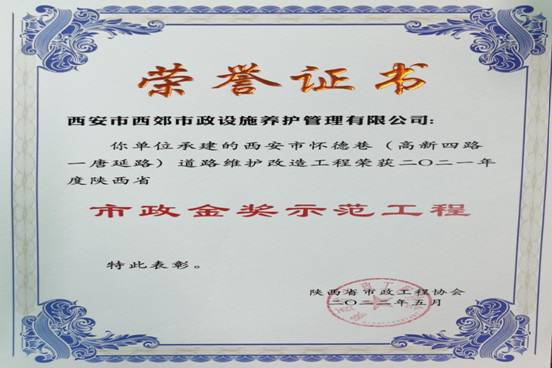 荣誉证书
西安市西郊市政设施养护管理有限公司:
你单位承建的西安市怀德巷（高新四路
一唐延路）道路维护改造工程荣获二〇二一年
度陕西省
市政金奖示范工程
特此表彰。
陕西省市政工程协会
二〇二二年五月